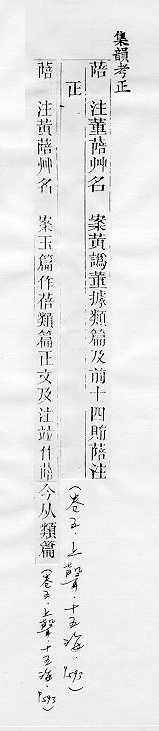 集韻考正
蓓 注董蓓艸名 案黃譌董據類篇及前十四賄蓓注
正 (卷五·上聲·十五海·p593)
蓓 注黃蓓艸名 案玉篇作蓓類篇正文及注竝作今从類篇 (卷五·上聲·十五海·p593)